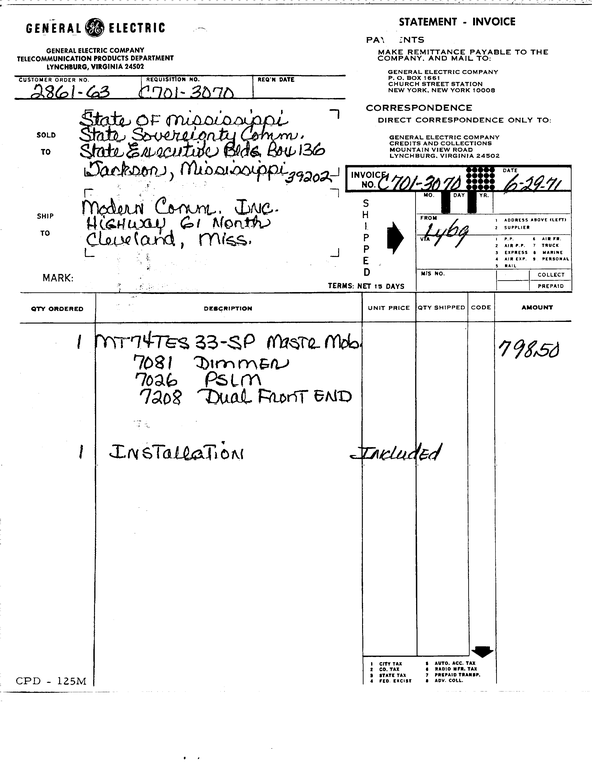 GENERAL GE ELECTRIC
GENERAL ELECTRIC COMPANY
TELECOMMUNICATION PRODUCTS DEPARTMENT
LYNCHBURG, VIRGINIA 24502
STATEMENT - INVOICE
MAKE REMITTANCE PAYABLE TO THE
COMPANY, AND MAIL TO:
GENERAL ELECTRIC COMPANY
P. O. BOX 1661
CHURCH STREET STATION
NEW YORK, NEW YORK 10008
CORRESPONDENCE
DIRECT CORRESPONDENCE ONLY TO:
GENERAL ELECTRIC COMPANY
CREDITS AND COLLECTIONS
MOUNTAIN VIEW ROAD
LYNCHBURG, VIRGINIA 24502
CUSTOMER ORDER NO. REQUISITION NO. REQ'N DATE
2861-63 C701-3070
SOLD TO
State OF Mississippi
State Sovereignty Comm.
State Executive Bldg Box 136
Jackson, Mississippi 39202
INVOICE NO. C701-3070
DATE 6-29-71
MO. DAY YR.
SHIP TO
Modern Comm. INC.
HIGHWAY 61 North
Cleveland, Miss.
MARK:
SHIPPED
FROM Lybg
VIA
M/S NO.
1 ADDRESS ABOVE (LEFT)
2 SUPPLIER
1 P.P. 6 AIR FR.
2 AIR P.P. 7 TRUCK
3 EXPRESS 8 MARINE
4 AIR EXP. 9 PERSONAL
5 RAIL
COLLECT
PREPAID
TERMS: NET 15 DAYS
QTY ORDERED DESCRIPTION UNIT PRICE QTY SHIPPED CODE AMOUNT
1 MT74TES 33-SP Mastr Mob. 798.50
7081 Dimmer
7026 PSLM
7208 Dual Front END
1 INSTAllATION Included
1 CITY TAX 5 AUTO. ACC. TAX
2 CO. TAX 6 RADIO MFR. TAX
3 STATE TAX 7 PREPAID TRANSP.
4 FED. EXCISE 8 ADV. COLL.
CPD - 125M